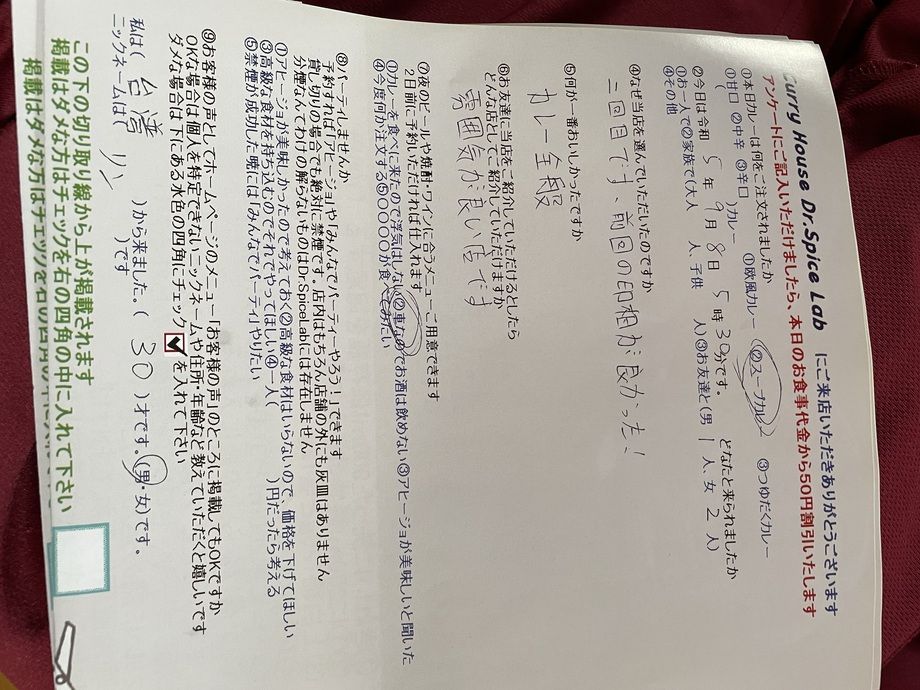 Curry House Dr.Spice Lab にご来店いただきありがとうございます
アンケートにご記入いただけましたら、本日のお食事代金から50円割引いたします
①本日カレーは何をご注文されましたか
①甘口 ②中辛 ③辛口
( )カレー ①欧風カレー ②スープカレー ③つゆだくカレー
②今日は令和 5 年 9 月 8 日 5 時 30 分です。 どなたと来られましたか
①お一人で②家族で(大人 人、子供 人)③お友達と(男 1 人、女 2 人)
④その他
④なぜ当店を選んでいただいたのですか
二回目です、前回の印相が良かった!
⑤何が一番おいしかったですか
カレー全般
⑥お友達に当店をご紹介していただけるとしたら
どんな店としてご紹介していただけますか
雰囲気が良い店です
⑦夜のビールや焼酎・ワインに合うメニューご用意できます
2日前に予約いただければ仕入れます
①カレーを食べに来たので浮気はしない②車なのでお酒は飲めない③アヒージョが美味しいと聞いた
④今度何か注文する⑤〇〇〇〇が食べてみたい
⑧パーティしませんか
予約すればアヒージョや「みんなでパーティーやろう!」できます
貸し切りの場合でも絶対に禁煙です。店内はもちろん店舗の外にも灰皿はありません
分煙なんてわけの解らないものはDr.SpiceLabには存在しません
①アヒージョが美味しかったので考えておく②高級な食材はいらないので、価格を下げてほしい
③高級な食材を持ち込むのでそれでやってほしい④一人( )円だったら考える
⑤禁煙が成功した暁には「みんなでパーティ」やりたい
⑨お客様の声としてホームページのメニュー「お客様の声」のところに掲載してもOKですか
OKな場合は個人を特定できないニックネームや住所・年齢など教えていただくと嬉しいです
ダメな場合は下にある水色の四角にチェック ✓ を入れて下さい
私は( 台湾 )から来ました。( 30 )才です。(男・女)です。
ニックネームは( リン )です
この下の切り取り線から上が掲載されます
掲載はダメな方はチェックを右の四角の中に入れて下さい